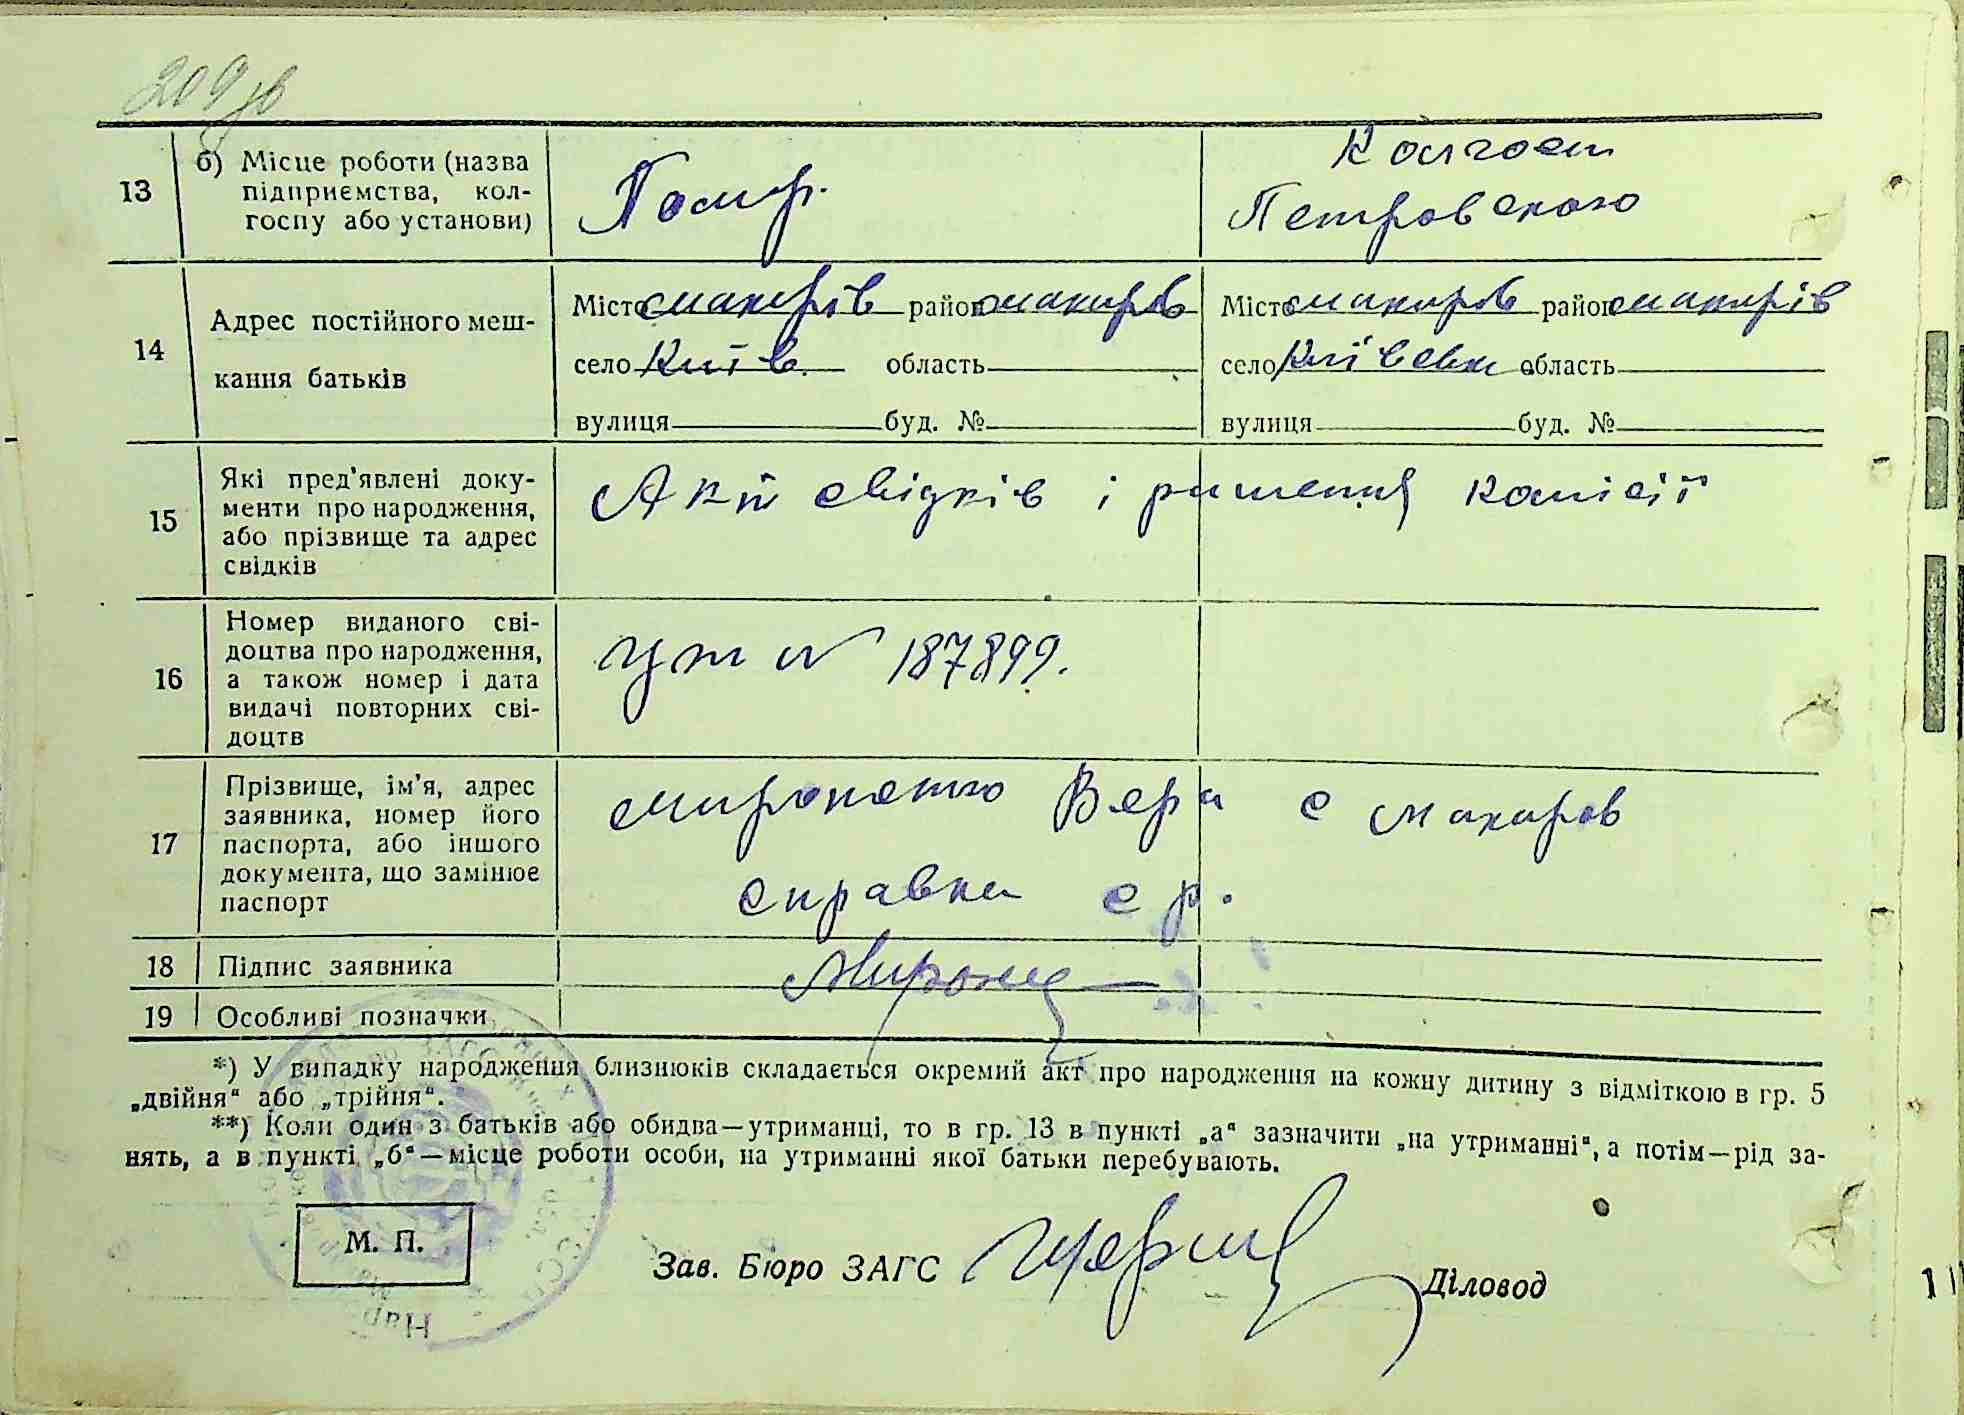 209 зв
13 б) Місце роботи (назва підприємства, колгоспу або установи) Помр. Колгосп
Петровського
14 Адрес постійного мешкання батьків
Місто Макарів район Макарів Місто Макаров район Макарів
село Київ. область село Київськ область
вулиця буд. № вулиця буд. №
15 Які пред'явлені документи про народження, або прізвище та адрес свідків
Акт свідків і ришення комісії
16 Номер виданого свідоцтва про народження, а також номер і дата видачі повторних свідоцтв
№ 187899.
17 Прізвище, ім'я, адрес заявника, номер його паспорта, або іншого документа, що замінює паспорт
Вера с Макаров
справка с р.
18 Підпис заявника
19 Особливі позначки
*) У випадку народження близнюків складається окремий акт про народження на кожну дитину з відміткою в гр. 5
„двійня“ або „трійня“.
**) Коли один з батьків або обидва—утриманці, то в гр. 13 в пункті „а“ зазначити „на утриманні“, а потім—рід за-
нять, а в пункті „б“—місце роботи особи, на утриманні якої батьки перебувають.
М. П.
Зав. Бюро ЗАГС Діловод